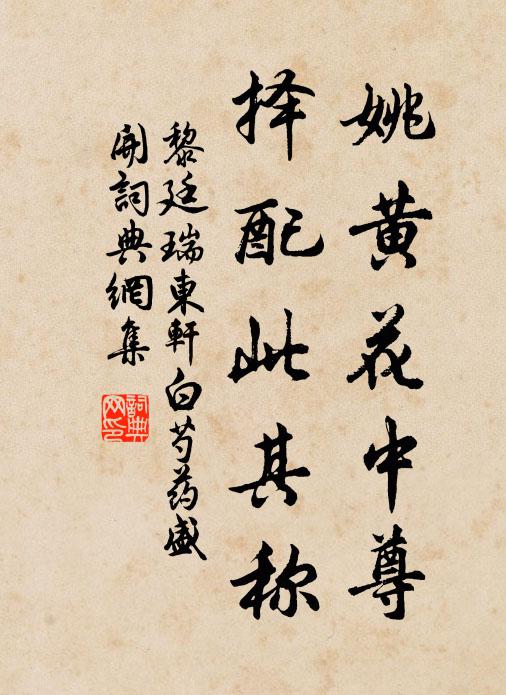 姚黄花中尊
择配此其称
黎廷瑞東軒白芍药盛
開詞典網集
詞典
网印